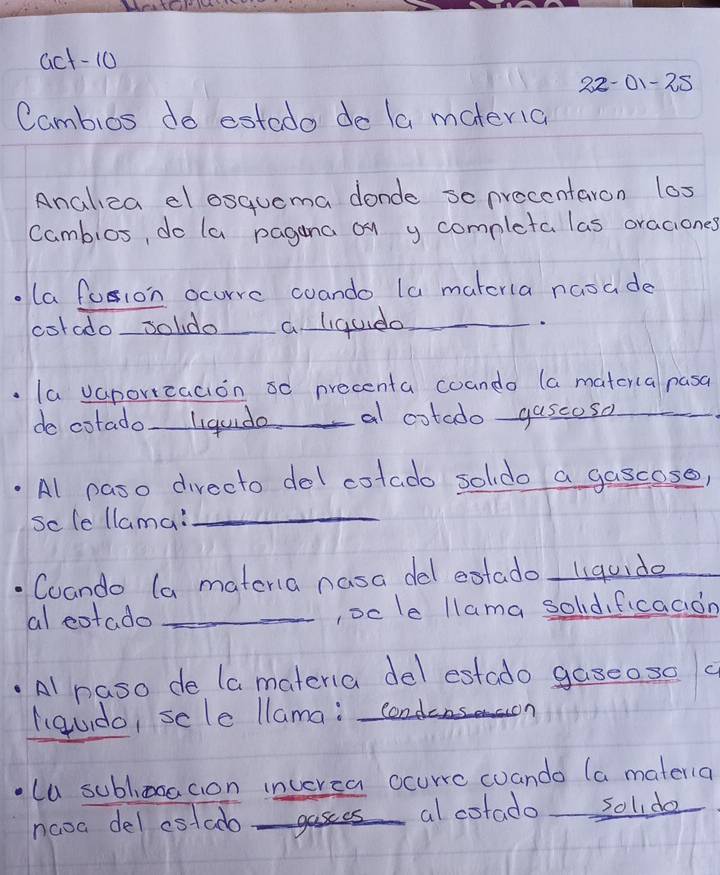 act-10
22-01-25
Cambios de estado de la materia
Analiza el esquema donde se precentaron los
cambios, de la pagana y completa las oraciones
• la fusión ocurre cuando la materia pasa de
estado solido a liquido.
• la vaporización se precenta cuando la materia pasa
de estado liquido al estado gaseoso.
• Al paso directo del estado solido a gaseoso,
se le llama:
• Cuando la materia pasa del estado liquido
al estado , se le llama solidificación
• Al paso de la materia del estado gaseoso a
liquido, se le llama: condensacion
• La sublimacion inverza ocurre cuando la materia
pasa del estado gases al estado solido.